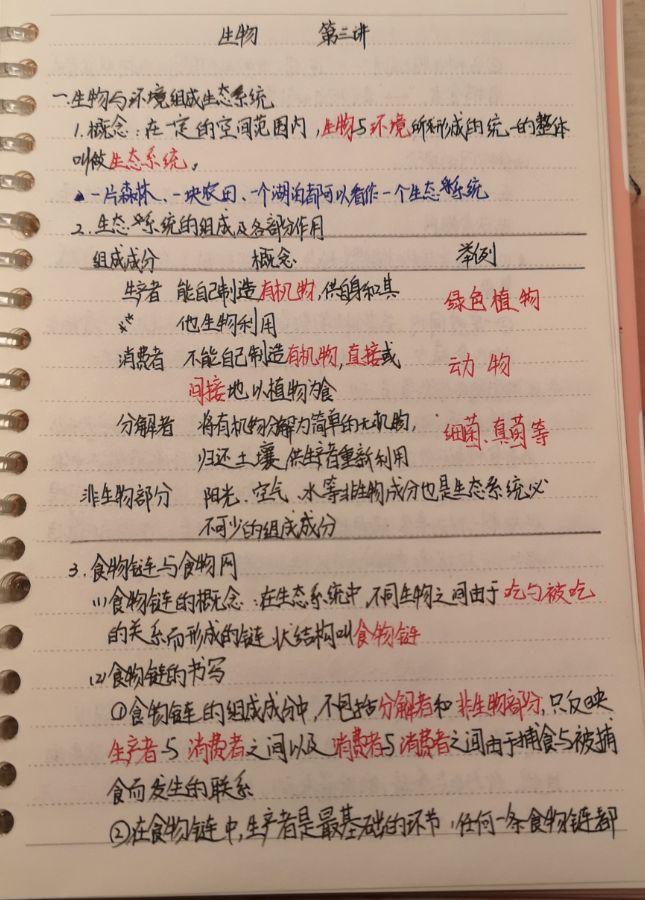 生物 第三讲
一.生物与环境组成生态系统
1.概念:在一定的空间范围内,生物与环境所形成的统一的整体
叫做生态系统。
▲一片森林、一块农田、一个湖泊都可以看作一个生态系统
2.生态系统的组成及各部分作用
组成成分 概念 举例
生产者 能自己制造有机物,供自身和其 绿色植物
他生物利用
消费者 不能自己制造有机物,直接或 动物
间接地以植物为食
分解者 将有机物分解为简单的无机物, 细菌、真菌等
归还土壤供生产者重新利用
非生物部分 阳光、空气、水等非生物成分也是生态系统必
不可少的组成成分
3.食物链与食物网
(1)食物链的概念:在生态系统中,不同生物之间由于吃与被吃
的关系而形成的链状结构叫食物链
(2)食物链的书写
①食物链的组成成分中,不包括分解者和非生物部分,只反映
生产者与消费者之间以及消费者与消费者之间由于捕食与被捕
食而发生的联系
②在食物链中,生产者是最基础的环节,任何一条食物链都